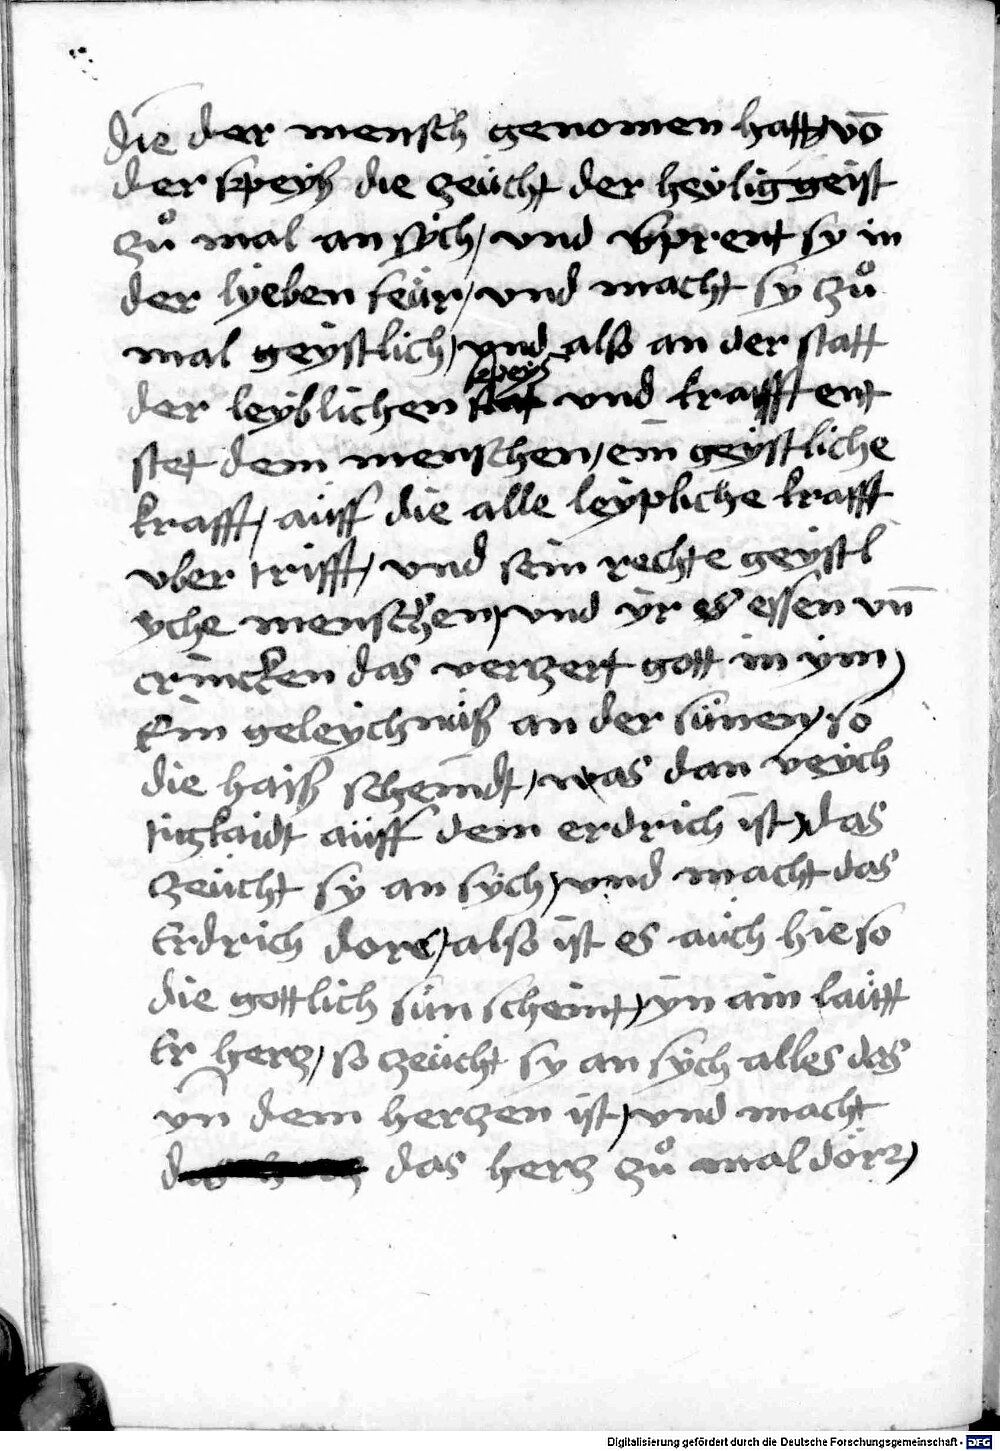 die der mensch genomen hatt vō
der speyß die zeücht der heylig geist
zů mal an sÿch, vnd verprent sy in
der lÿeben feür, vnd macht sy zů
mal geÿstlich, vnd also an der statt
speyß
der leÿblichen vnd krafft ent
stet dem menschen, ein geÿstliche
krafft, aüff die alle leÿpliche krafft
vber trifft, vnd sein rechte geÿstl
yche menschen, vnd ÿr essen vn̄
trincken das verzert gott in ÿm,
Ein geleÿchnüß an der sünen, so
die haiß scheindt, was dan veÿch
tigkaidt aüff dem erdrich ist, das
zeücht sÿ an sÿch, vnd macht das
Erdrich dorr, also ist es aüch hie so
die gottlich sün scheint, ÿn ain laütt
Er herz, so zeücht sy an sÿch alles das
ÿn dem herzen ist, vnd macht
das herz zů mal dörr,
Digitalisierung gefördert durch die Deutsche Forschungsgemeinschaft - DFG